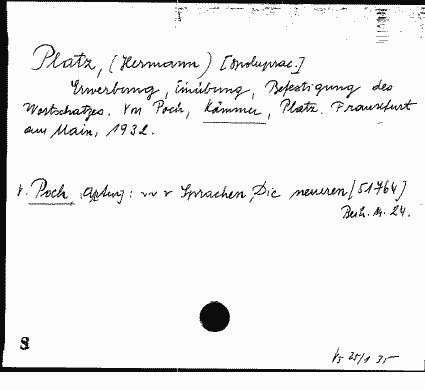 Platz, (Hermann)
Erwerbung, Einübung, Befestigung des
Wortschatzes. Von Poch, Kämmer, Platz. Frankfurt
am Main, 1932.
v. Poch, Sprachen, Die neueren [51764]
Beih. N. 24.
8